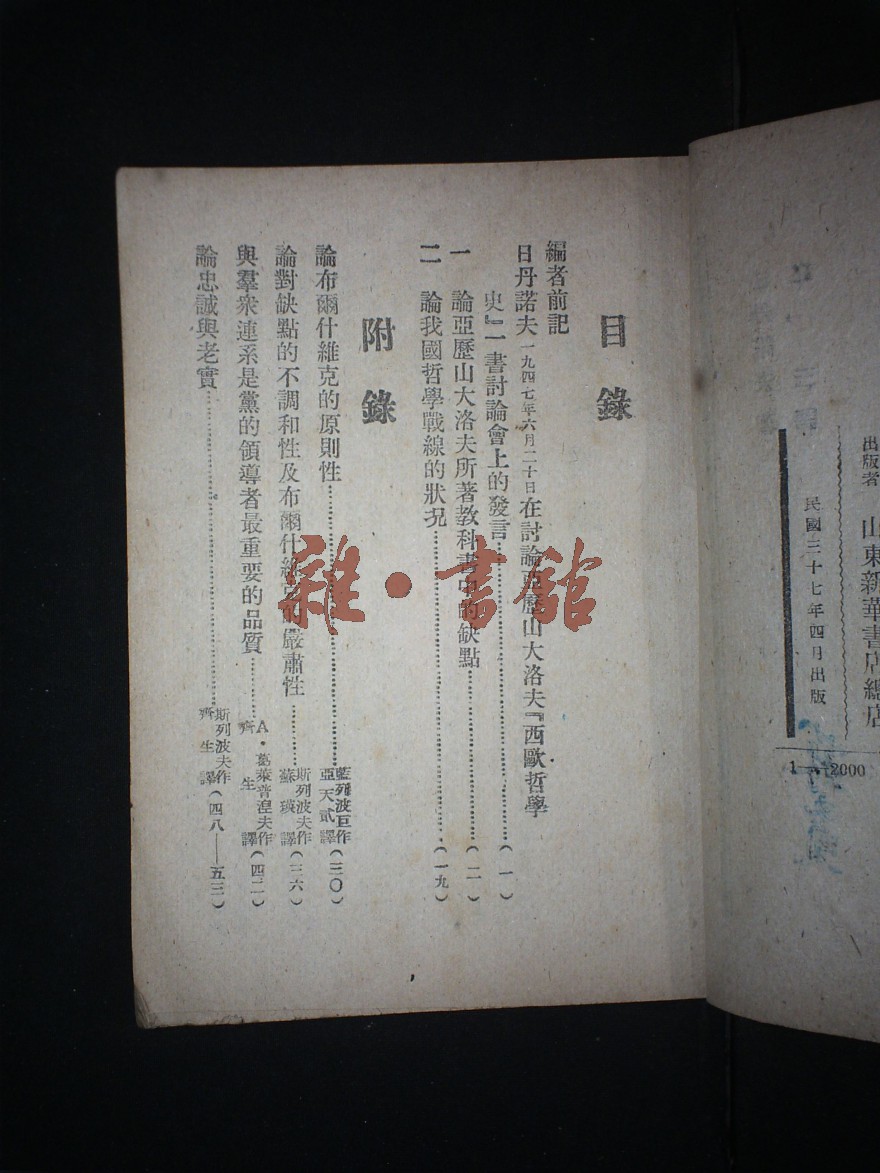 出版者
山東新華書店總店
民國三十七年四月出版
1—2000
目錄
編者前記
日丹諾夫一九四七年六月二十日在討論亞歷山大洛夫『西歐哲學
史』一書討論會上的發言……(一)
一 論亞歷山大洛夫所著教科書中的缺點……(二)
二 論我國哲學戰線的狀況……(一九)
附錄
論布爾什維克的原則性……藍列波巨作 亞天貳譯(三〇)
論對缺點的不調和性及布爾什維克的嚴肅性……斯列波夫作 蘇瑛譯(三六)
與羣衆連系是黨的領導者最重要的品質……A·葛萊普涅夫作 齊生譯(四二)
論忠誠與老實……斯列波夫作 齊生譯(四八——五三)
雜·書館